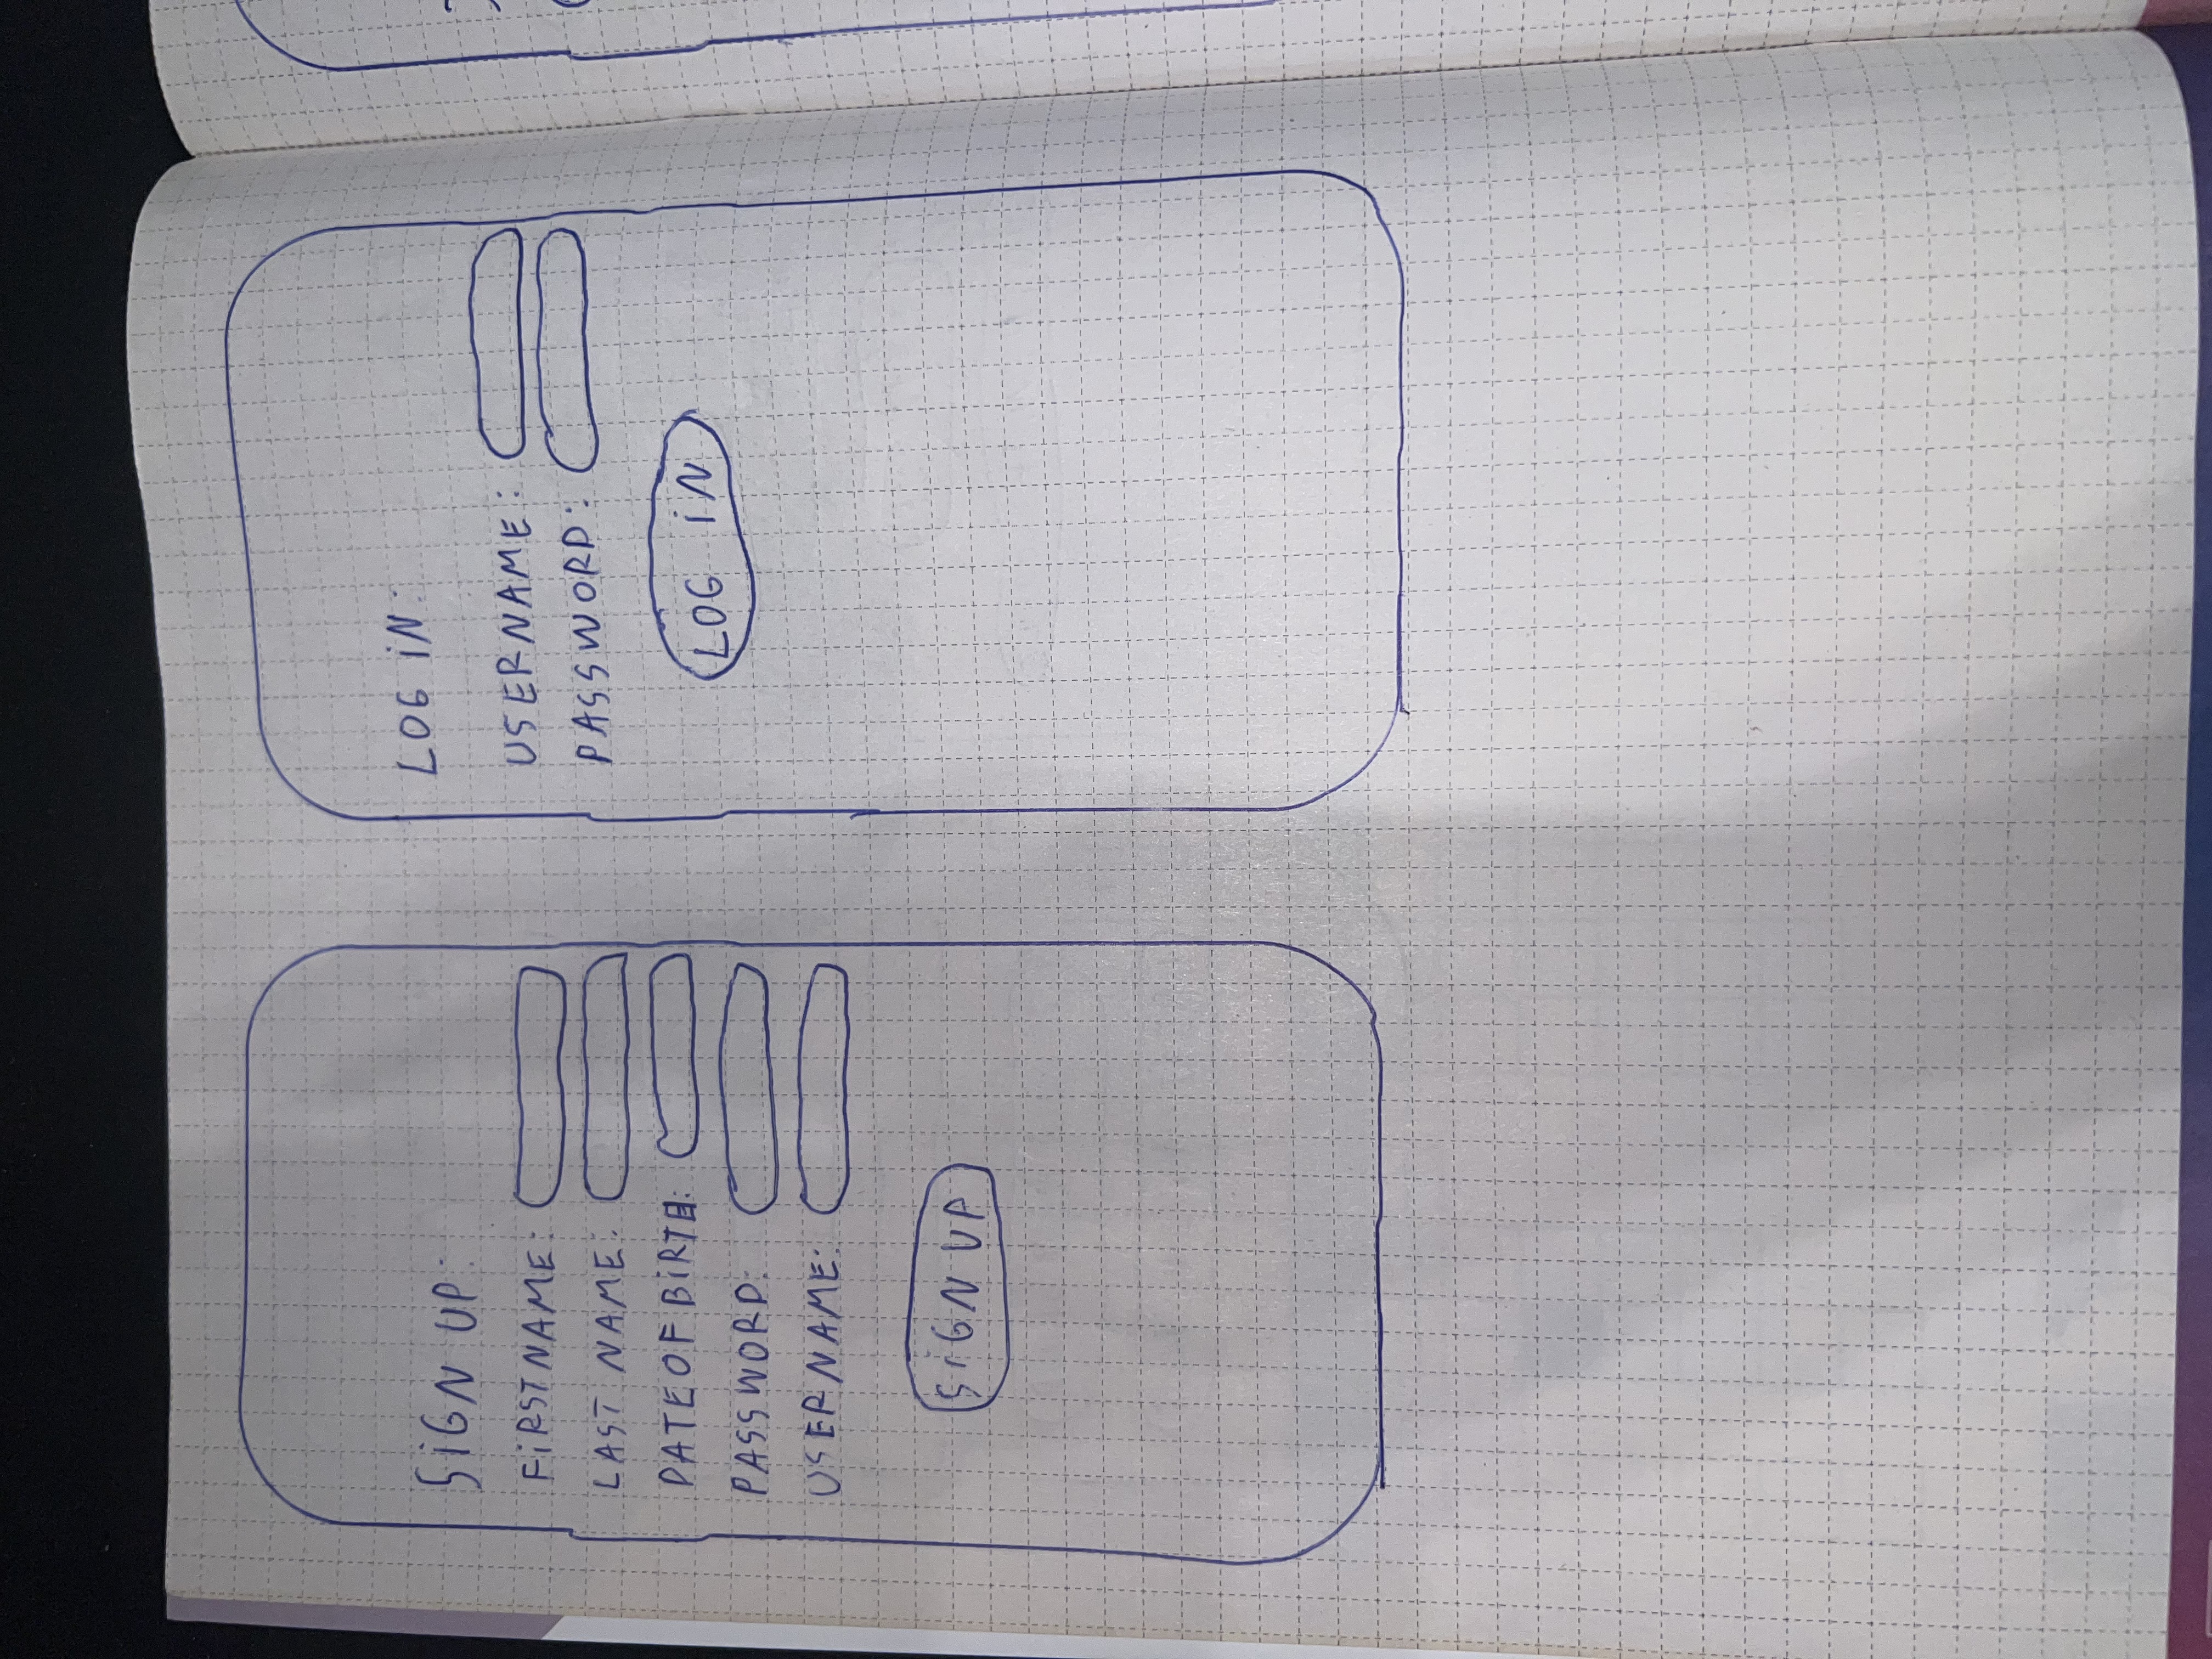 SiGN UP:
FiRSTNAME:
LAST NAME:
DATE OF BiRTH:
PASSWORD:
USERNAME:
SiGN UP
LOG iN:
USERNAME:
PASSWORD:
LOG iN